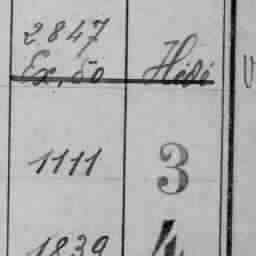 2847
Ex. 50 Hidi
1111 3
1839 4